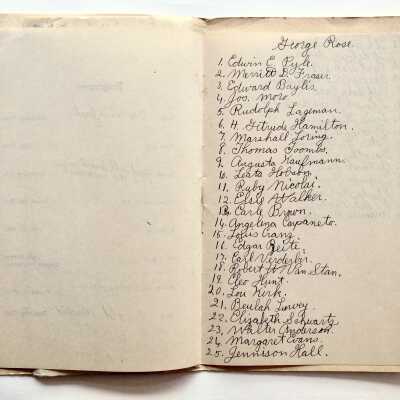 George Rose
1. Edwin E. Pyle.
2. Merritt D. Fraser
3. Edward Baylis
4. Jos. Moro
5. Rudolph Lageman.
6. H. Gitrude Hamilton.
7. Marshall Loring.
8. Thomas Toombs.
9. Augusta Kaufmann.
10. Leata Hobson.
11. Ruby Nicolai.
12. Elsie Walker.
13. Carle Brown.
14. Angelina Capaneto.
15. Louis Cranz.
16. Edgar
17. Carl
18. Robert W. Van Stan.
19. Cleo Hunt.
20. Lou Kirk.
21. Beulah
22. Elizabeth Schwartz
23. Walter Anderson.
24. Margaret Evans.
25. Jennison Hall.